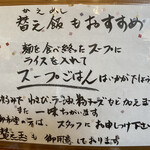 かえめし
替え飯もおすすめ
麺を食べ終えたスープに
ライスを入れて
スープごはんはいかがでしょうか
わさび、ラー油、粉チーズなど加えますと
一味ちがいます
の方は、スタッフにお申し付け下さい
替え玉も御用意しております